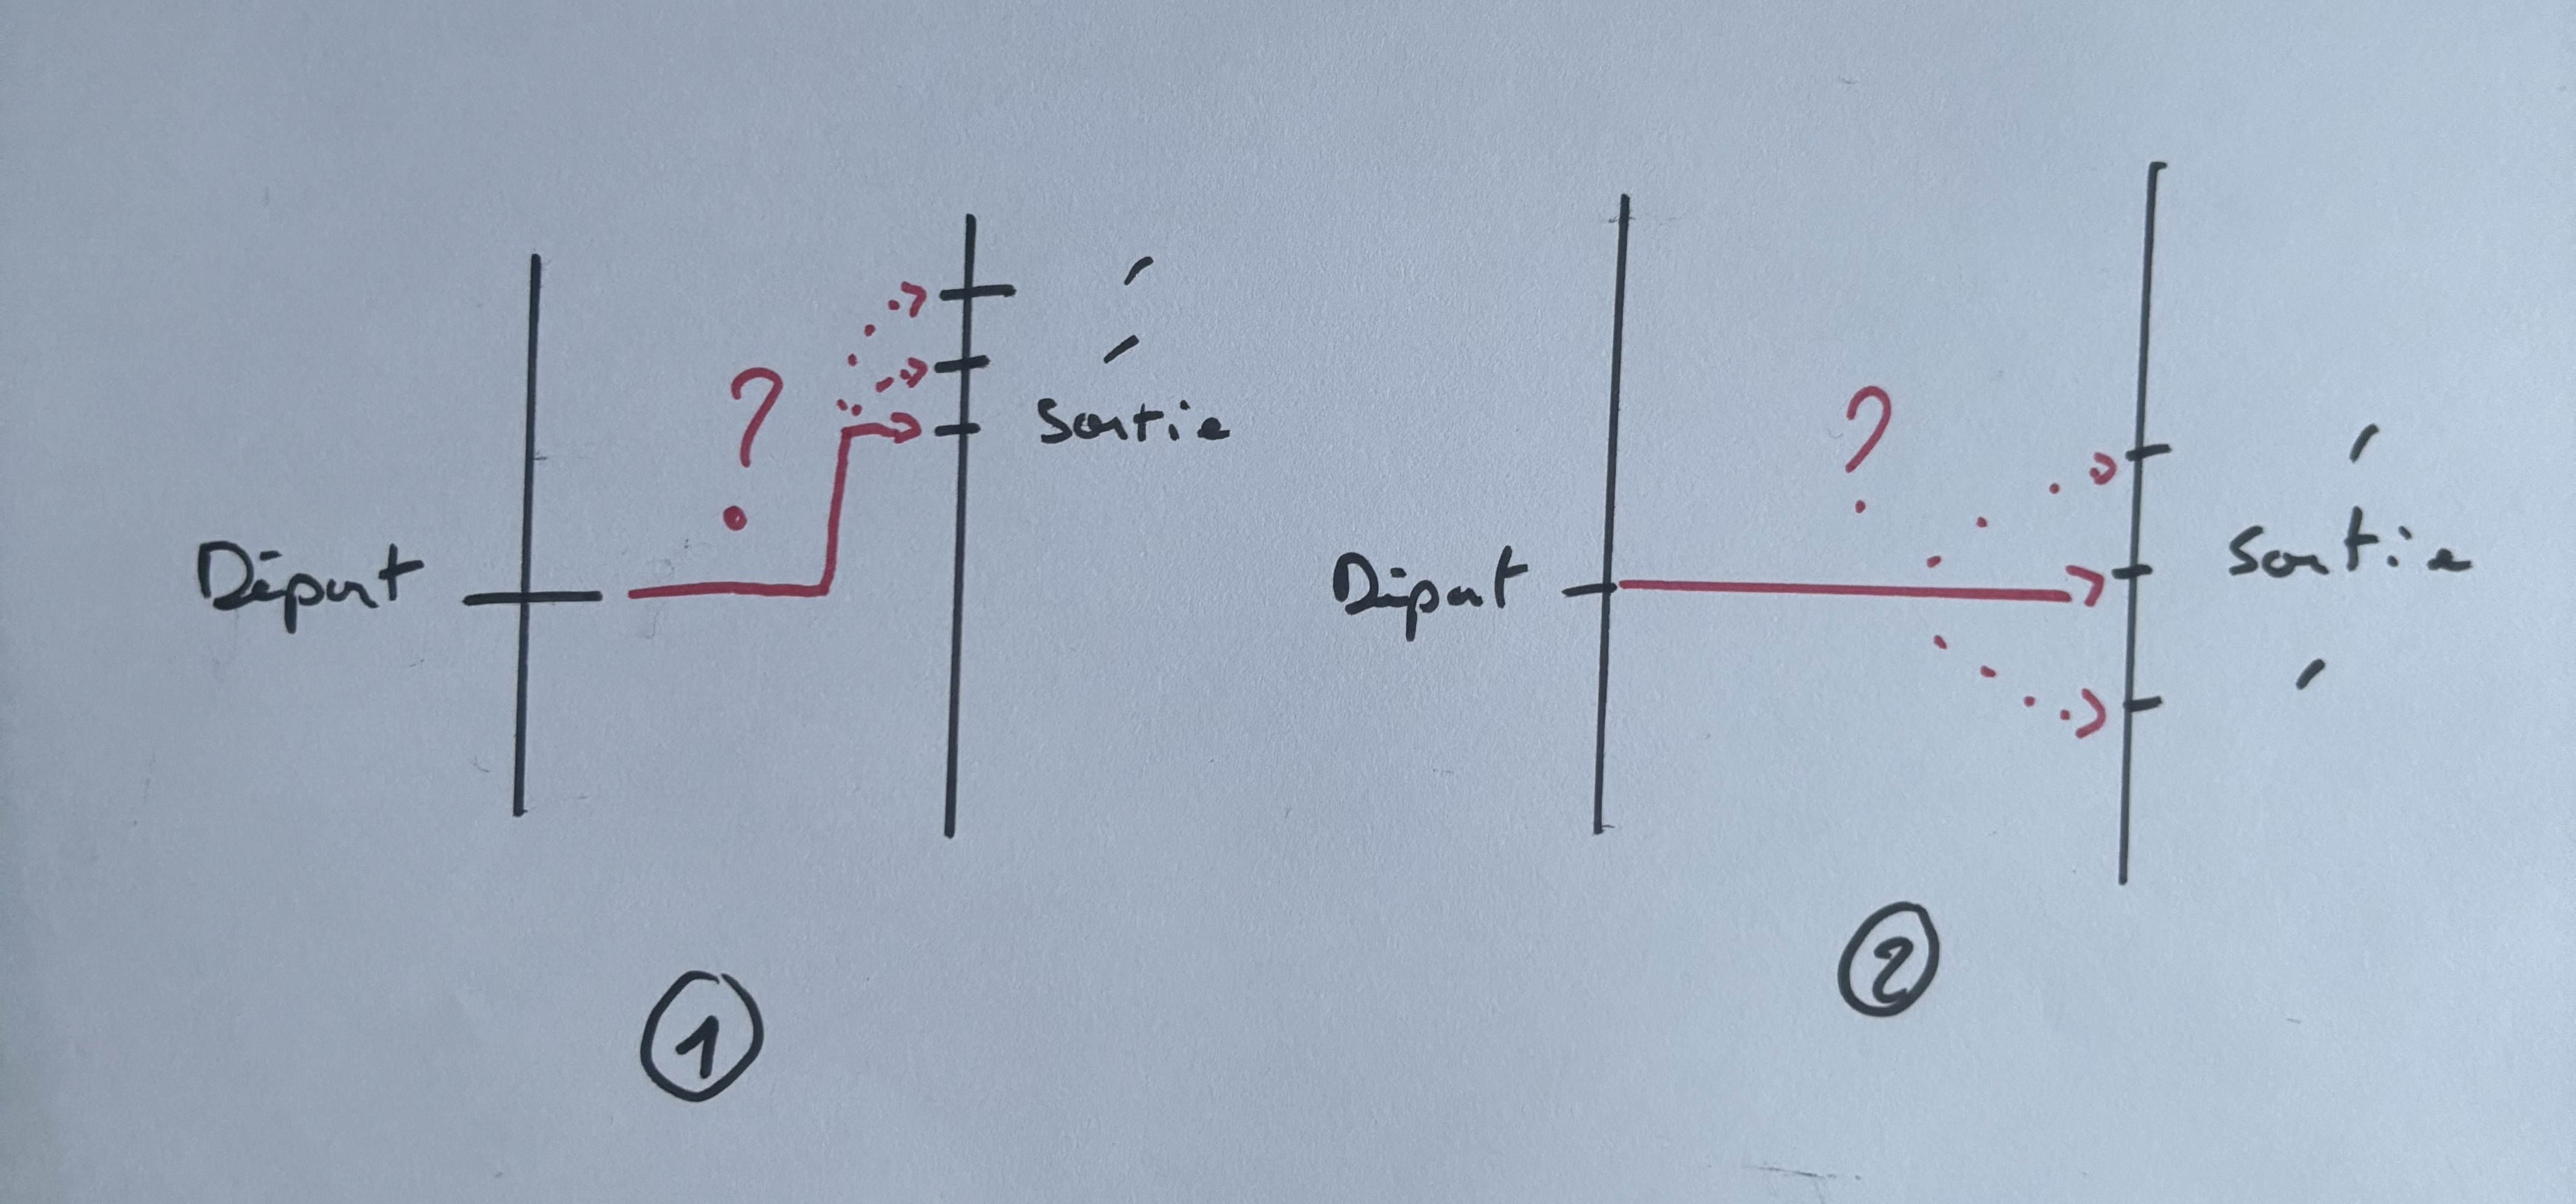 ?
Départ
Sortie
1
?
Départ
Sortie
2